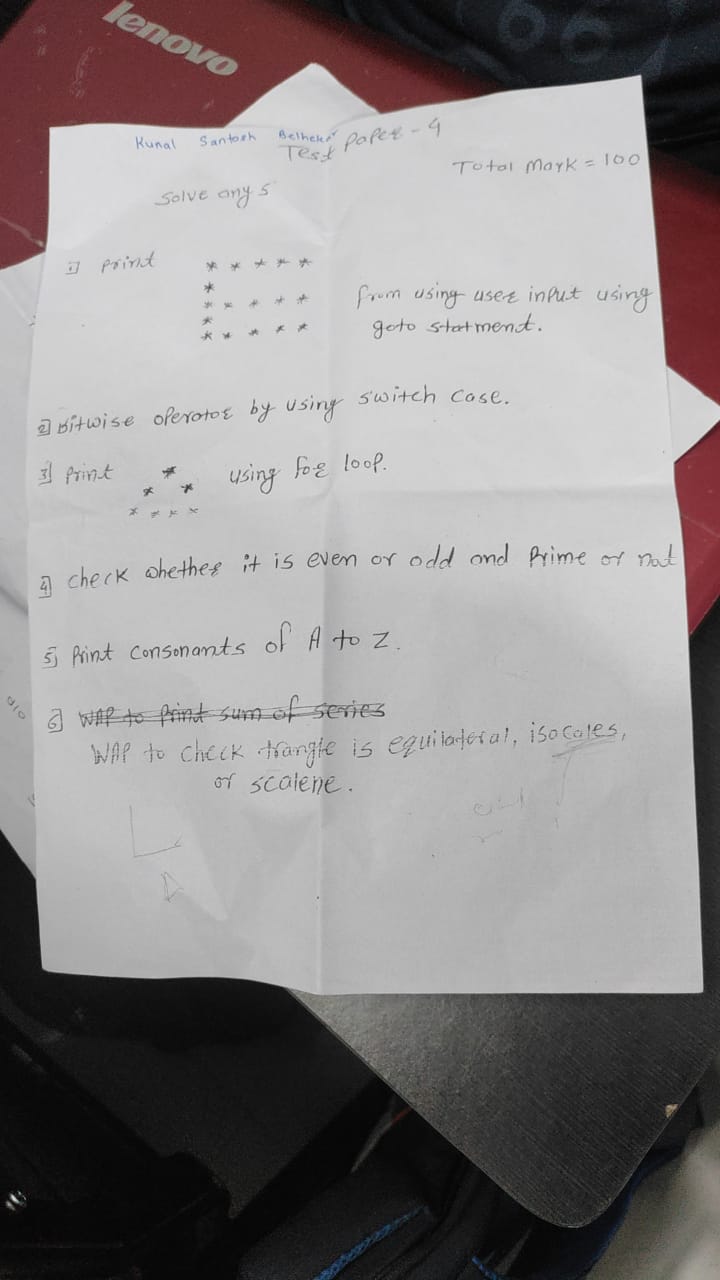 lenovo
Kunal Santosh Belhekar
Test Paper - 4
Total Mark = 100
Solve any 5
1] Print
* * * * *
*
* * * * *
*
* * * * *
from using user input using
goto statment.
2] Bitwise operator by using switch case.
3] Print
*
* *
* * * *
using for loop.
4] check whether it is even or odd and Prime or not
5] Print consonants of A to Z.
6] WAP to Print sum of series
WAP to check trangle is equilateral, isocales,
or scalene.